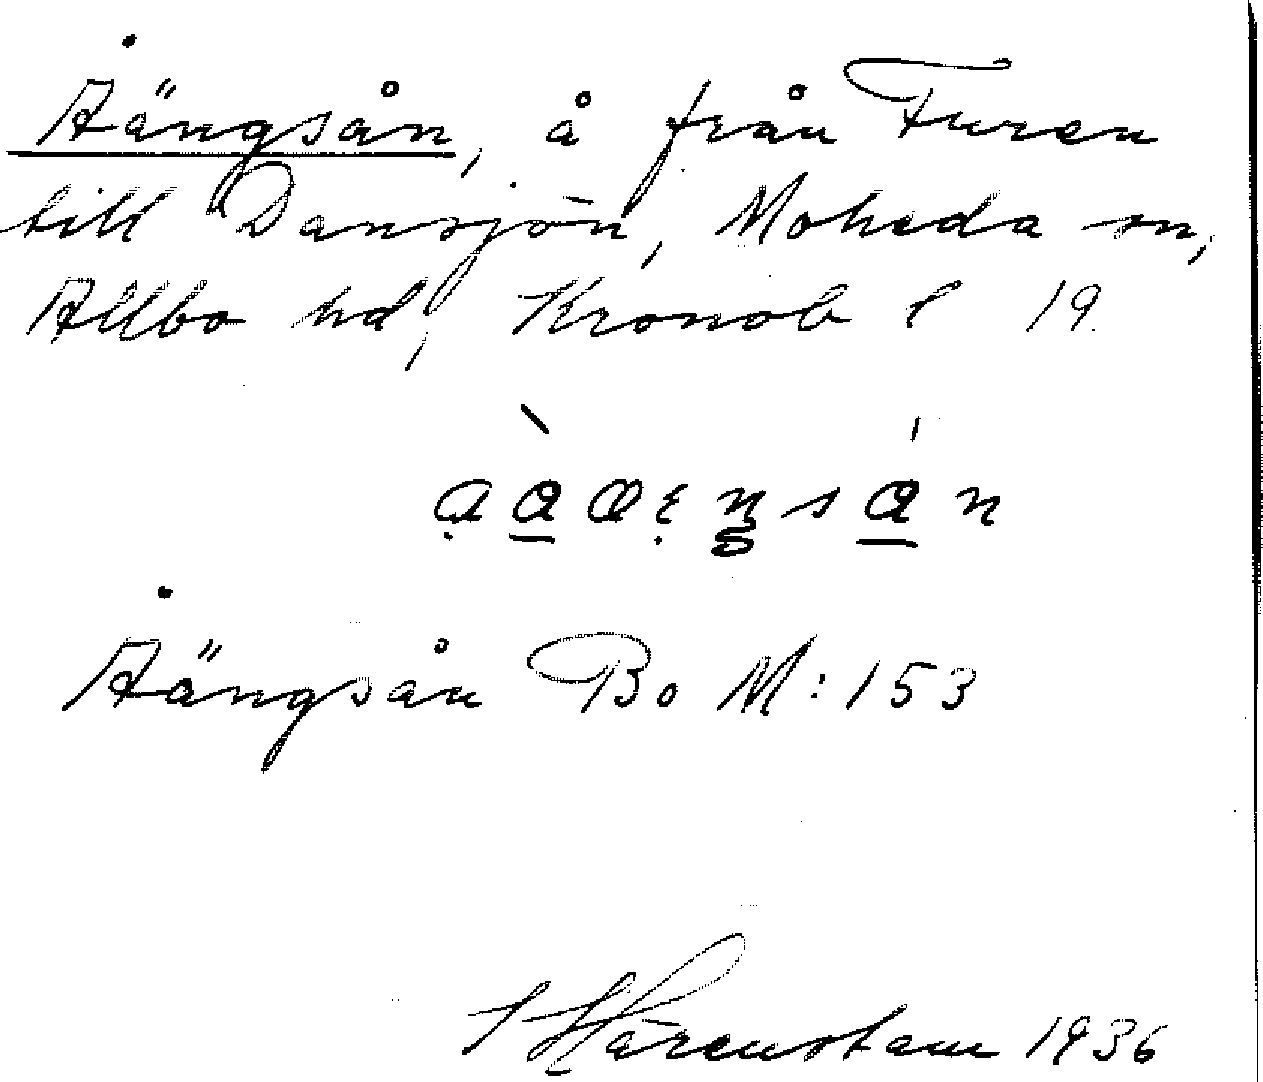 Åängsån, å från Furen
till Dansjön, Moheda sn,
Allbo hd, Kronob l 19.
Åängsån Bo M:153
Härenstam 1936